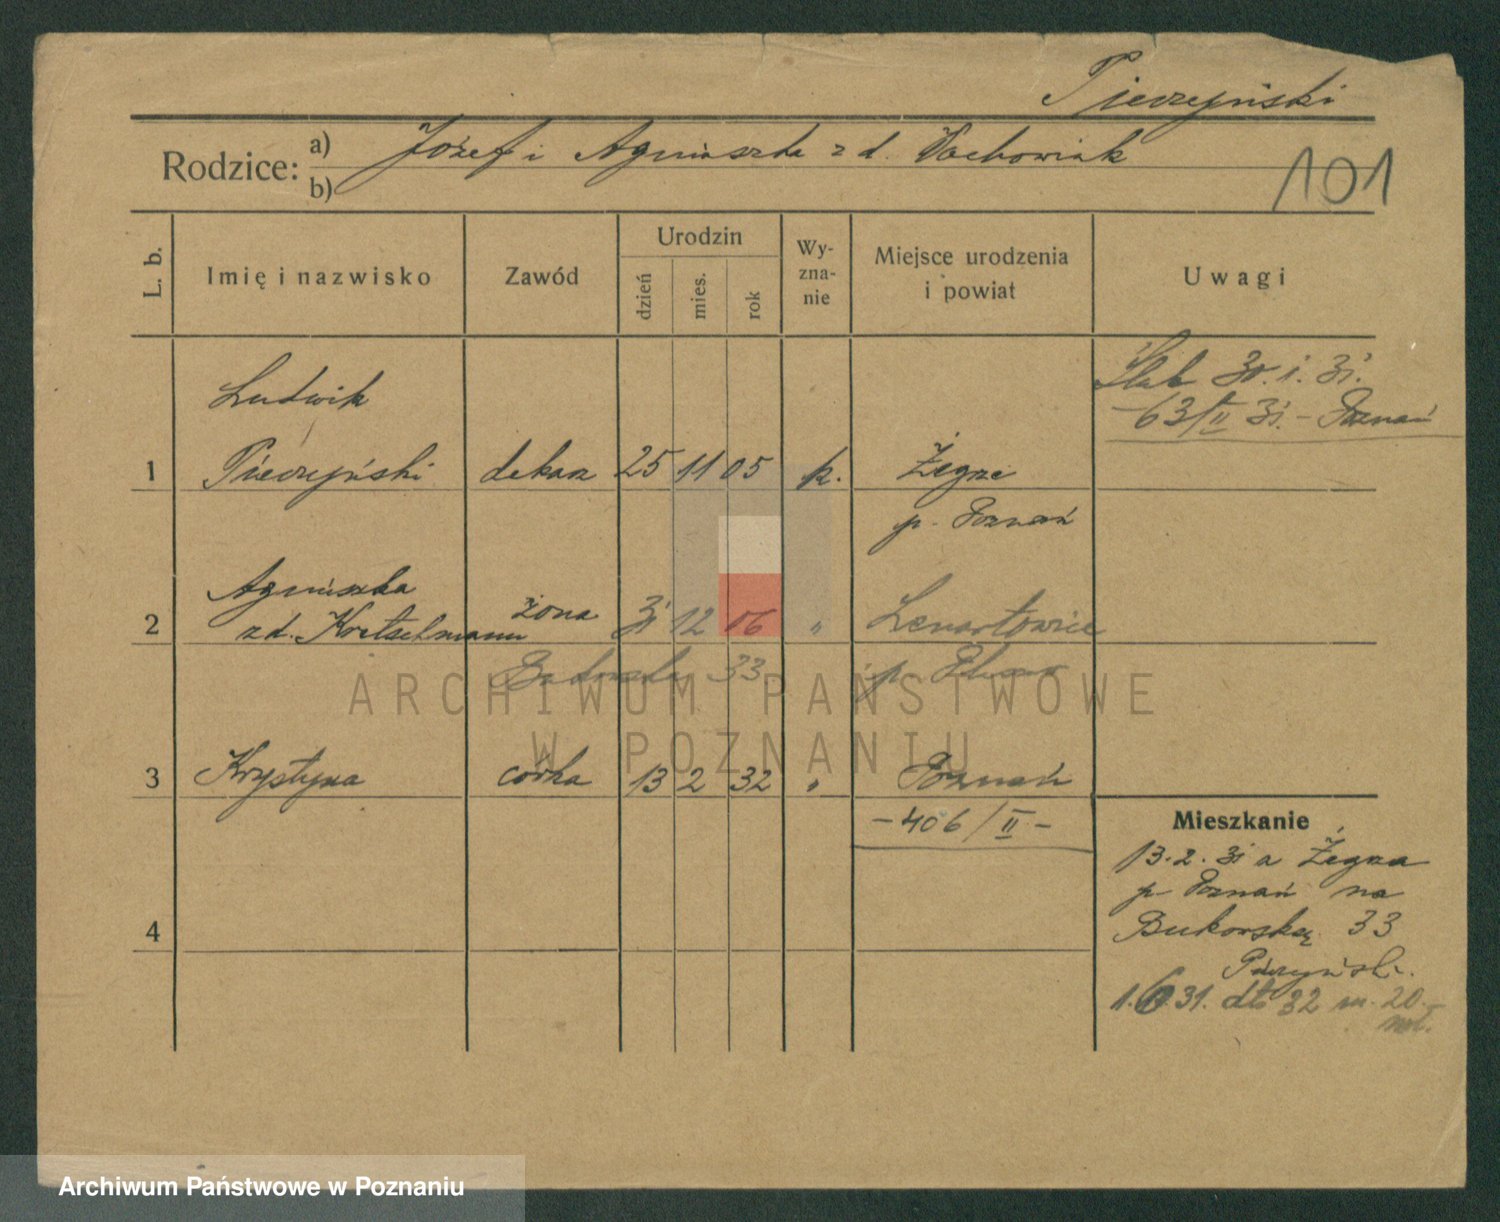 Pieczyński
Rodzice: a) Józef i Agnieszka z d. Wachowiak
b)
101
L. b.
Imię i nazwisko
Zawód
Urodzin
dzień
mies.
rok
Wy-
zna-
nie
Miejsce urodzenia
i powiat
Uwagi
Ludwik
Ślub 30.1.31.
-63/II 31. - Poznań
1 Pieczyński dekarz 25 11 05 k. Żegrze
p. Poznań
Agnieszka
2 z d. Kretschmann żona 31 12 06 " Lenartowice
33 p.
ARCHIWUM PAŃSTWOWE
W POZNANIU
3 Krystyna córka 13 2 32 " Poznań
-406/II-
Mieszkanie
13.2.31 z Żegrza
p Poznań na
Bukowską 33
Pieczyński.
4
31. dto 32 m. 20.
Archiwum Państwowe w Poznaniu